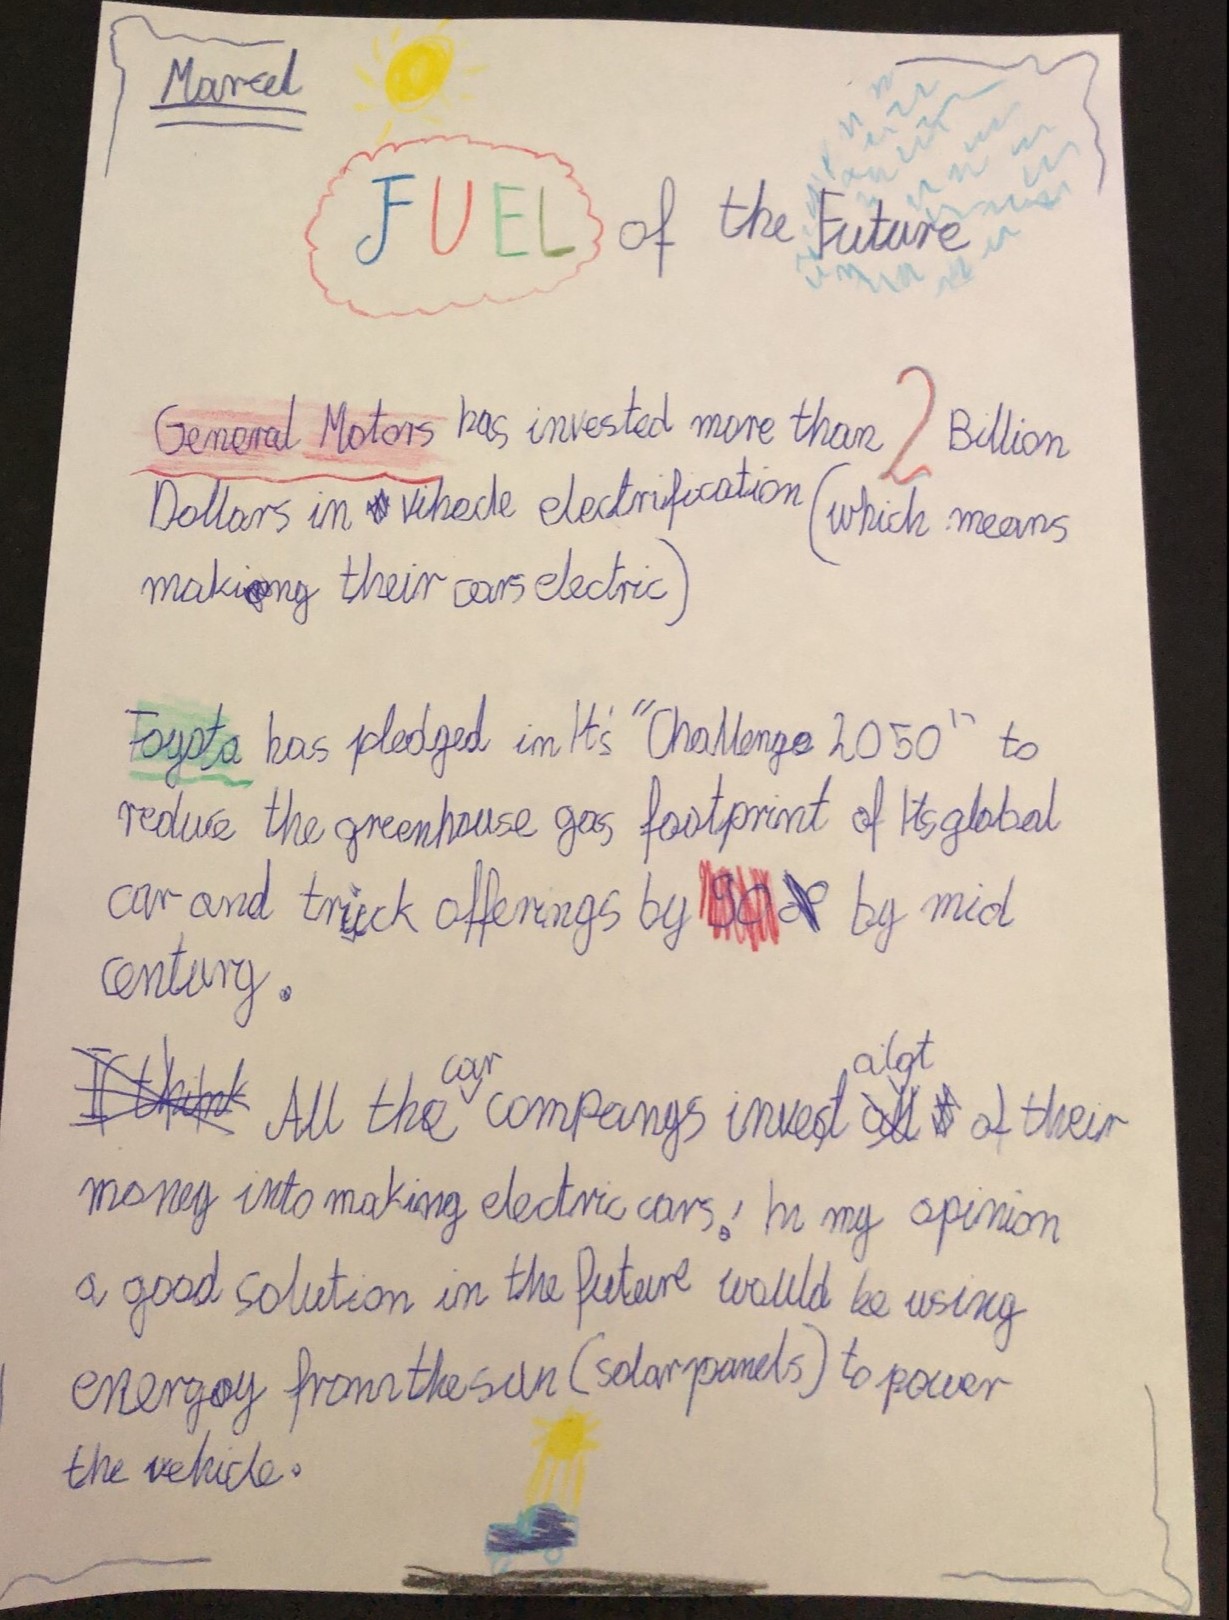 Marcel
FUEL of the Future
General Motors has invested more than 2 Billion
Dollars in vihecle electrification (which means
making their cars electric)
Toyota has pledged in It's "Challenge 2050" to
reduce the greenhouse gas footprint of Its global
car and truck offerings by 90 by mid
century.
I think All the car companys invest alot of their
money into making electric cars! In my opinion
a good solution in the future would be using
energy from the sun (solar panels) to power
the vehicle.